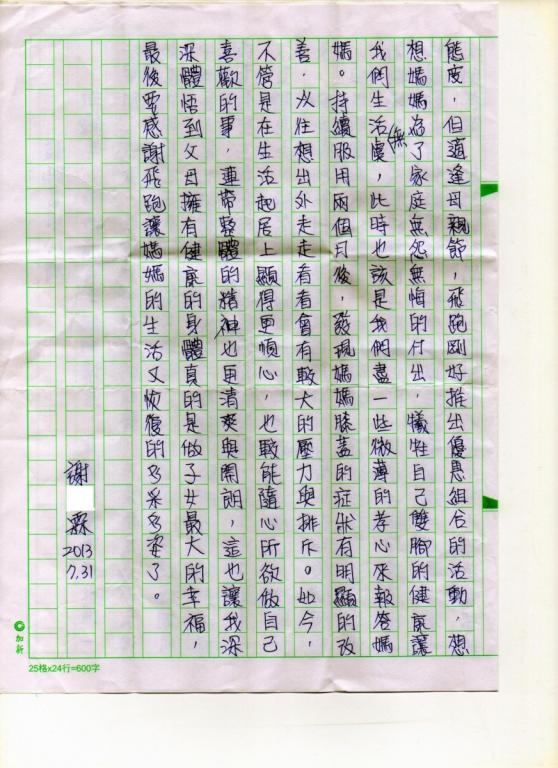 態度，但適逢母親節，飛跑剛好推出優惠組合的活動，想
想媽媽為了家庭無怨無悔的付出，犧牲自己雙腳的健康讓
我們生活無慮，此時也該是我們盡一些微薄的孝心來報答媽
媽。持續服用兩個月後，發現媽媽膝蓋的症狀有明顯的改
善，以往想出外走走看看會有較大的壓力與排斥。如今，
不管是在生活起居上顯得更順心，也較能隨心所欲做自己
喜歡的事，連帶整體的精神也更清爽與開朗，這也讓我深
深體悟到父母擁有健康的身體真的是做子女最大的幸福，
最後要感謝飛跑讓媽媽的生活又恢復的多采多姿了。
謝 霖
2013
7.31
加新
25格x24行=600字